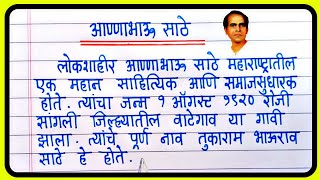 अण्णाभाऊ साठे
लोकशाहीर अण्णाभाऊ साठे महाराष्ट्रातील
एक महान साहित्यिक आणि समाजसुधारक
होते. त्यांचा जन्म १ ऑगस्ट १९२० रोजी
सांगली जिल्ह्यातील वाटेगाव या गावी
झाला. त्यांचे पूर्ण नाव तुकाराम भाऊराव
साठे हे होते.